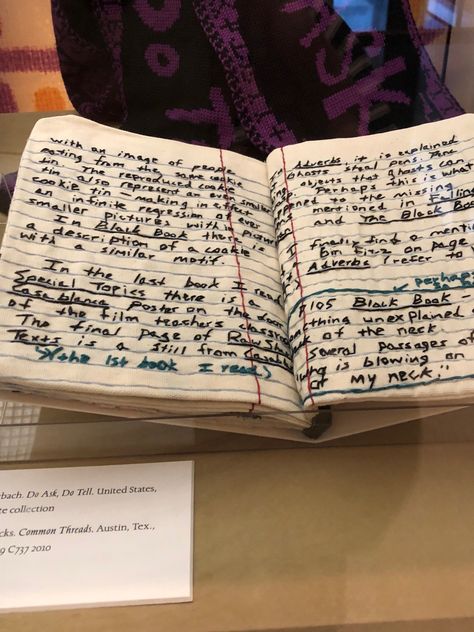 with an image of people
eating from the same cookie
tin. The reproduced cookie
tin also represent a smaller
cookie tin making in effect
an infinite regression of ever
smaller pictures within pictures
In Black Book there's
a description of a cookie tin
with a similar motif.
In the last book I read
Special Topics there is a
Casablanca poster on the door
of the film teachers classroom
The final page of Raw Shark
Texts is a still from Casablanca
(the 1st book I read)
Adverbs, it is explained
Ghosts steal pens. Are
objects that ghosts can
Perhaps this is what
to the missing
mentioned in Falling
and The Black Book
I finally find a mention
on page
Adverbs (refer to
perhaps
$105 Black Book
thing unexplained
of the neck
Several Passages of
is blowing on
at my neck."
ASK
bach. Do Ask, Do Tell. United States,
te collection
cks. Common Threads. Austin, Tex.,
9 C737 2010